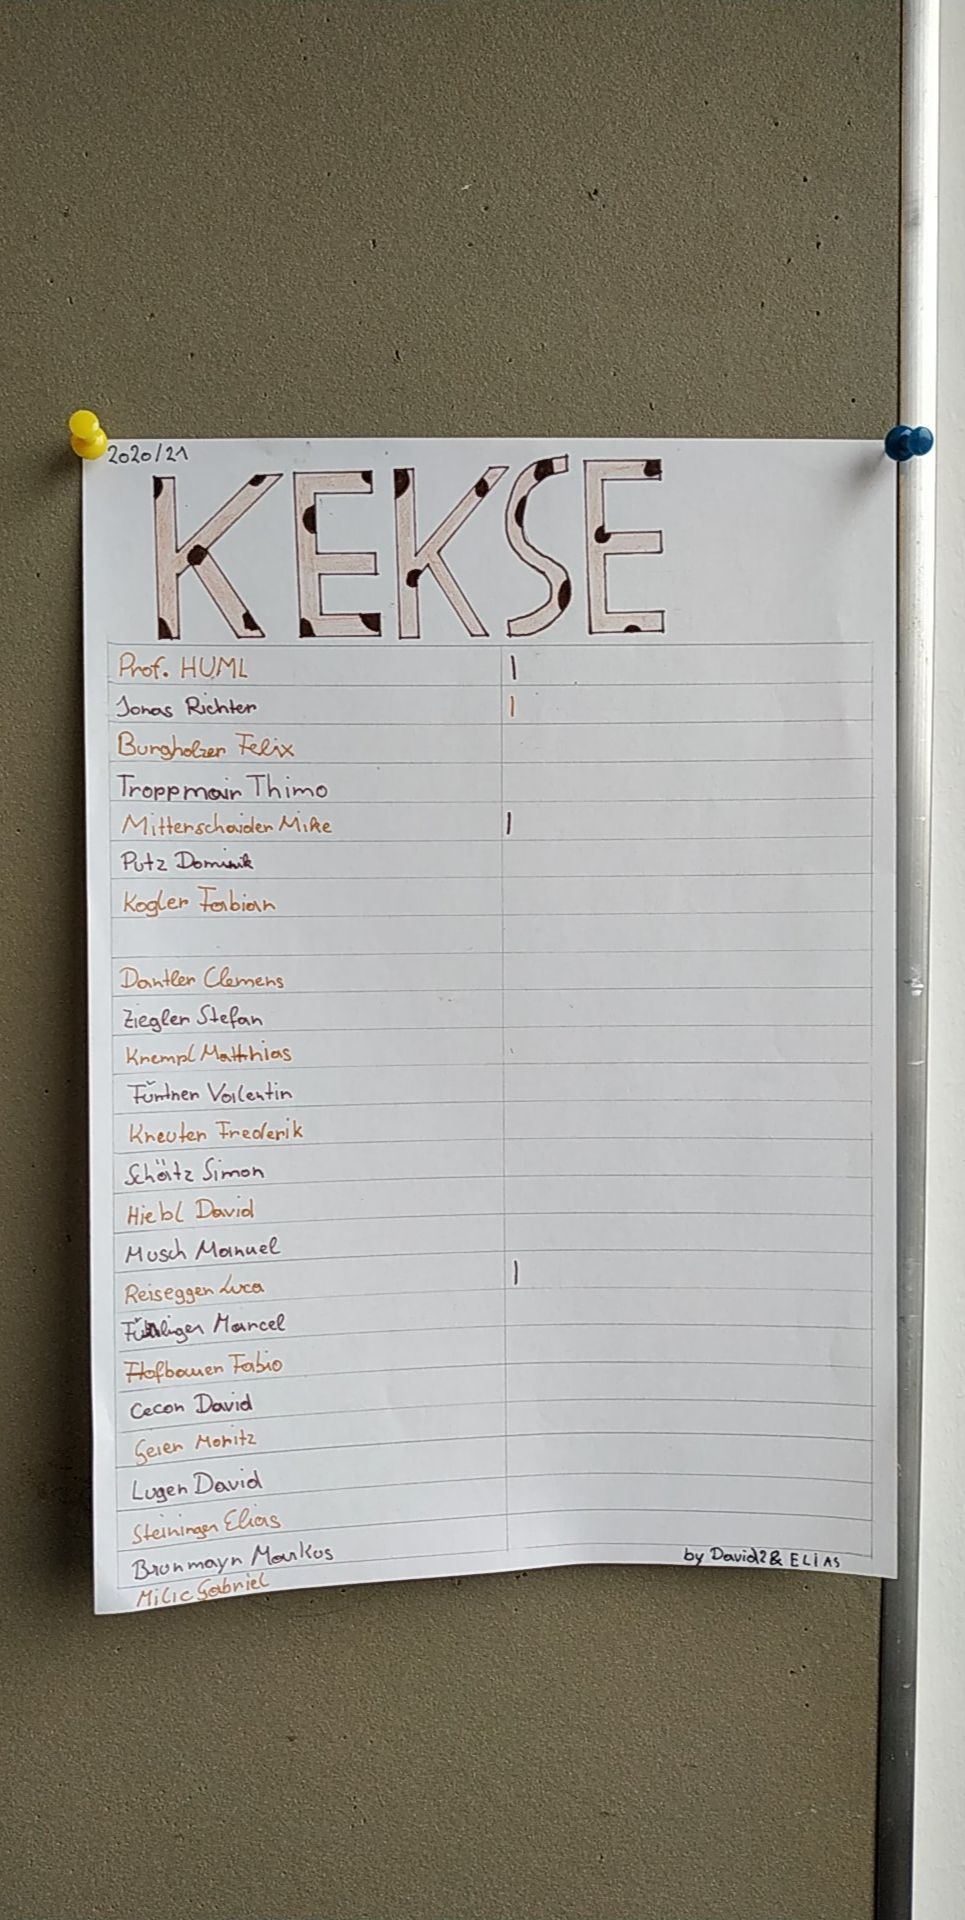 2020/21
KEKSE
Prof. HUML |
Jonas Richter |
Burgholzer Felix
Troppmair Thimo
Mitterschaider Mike |
Putz Dominik
Kogler Fabian
Dantler Clemens
Ziegler Stefan
Krempl Matthias
Fürtner Valentin
Kreuter Frederik
Schätz Simon
Hiebl David
Musch Manuel
Reisegger Luca |
Marcel
Hofbauer Fabio
Cecon David
Geier Moritz
Luger David
Steininger Elias
Brunmayr Markus
Milic Gabriel
by David2 & ELIAS